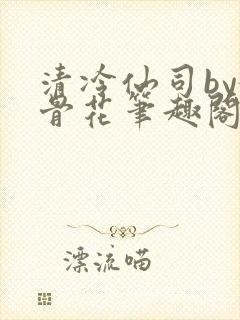 清冷仙司by
骨花笔趣阁
漂流喵